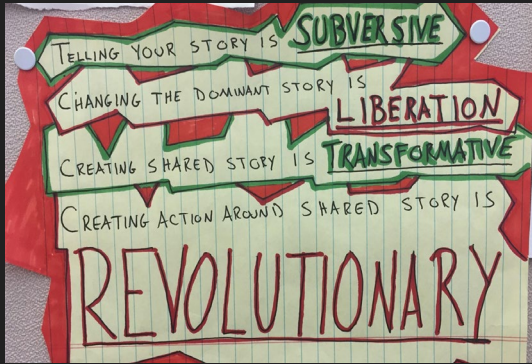 TELLING YOUR STORY IS SUBVERSIVE
CHANGING THE DOMINANT STORY IS
LIBERATION
CREATING SHARED STORY IS TRANSFORMATIVE
CREATING ACTION AROUND SHARED STORY IS
REVOLUTIONARY